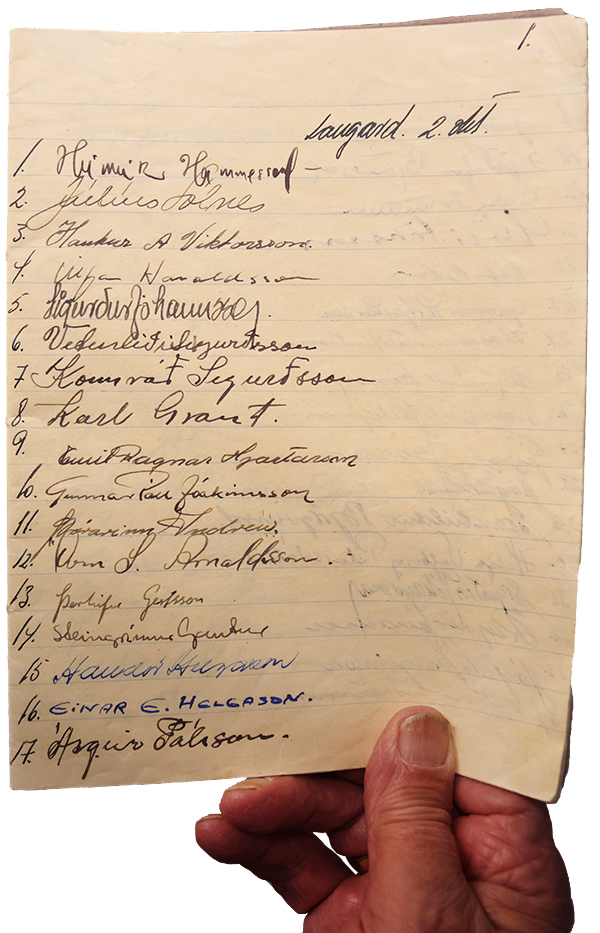 1.
Laugard. 2. okt.
1. Heimir Hannesson –
2. Júlíus Sólnes
3. Haukur A Viktorsson.
4. Úlfar Haraldsson
5. Sigurður Jóhannsson.
6. Veturliði Sigurðsson
7 Konráð Sigurðsson
8. Karl Grant.
9. Emil Ragnar Hjartarson
10. Gunnar Páll Jóakimsson
11. Þórarinn Andrew.
12. Örn S. Arnaldsson.
13. Þorleifur
14. Steingrímur Gautur
15
16. EINAR E. HELGASON.
17. Ásgeir Pálsson.